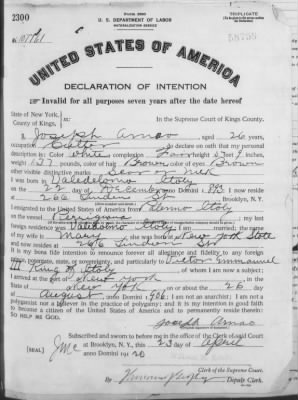 2300
Form 2203
TRIPLICATE
U. S. DEPARTMENT OF LABOR
NATURALIZATION SERVICE
58759
No. 107761
UNITED STATES OF AMERICA
DECLARATION OF INTENTION
Invalid for all purposes seven years after the date hereof
State of New York, ss:
County of Kings,
In the Supreme Court of Kings County.
I, Joseph Amao, aged 26 years,
occupation Cutter, do declare on oath that my personal
description is: Color White, complexion Fair, height 5 feet 7 inches,
weight 137 pounds, color of hair Brown, color of eyes Brown
other visible distinctive marks Scar on neck
I was born in Valdedolmo Italy
on the 22 day of December, anno Domini 1893; I now reside
at 266 Linden St, Brooklyn, N.Y.
I emigrated to the United States of America from Palermo Italy
on the vessel Perugiana; my last
foreign residence was Valdedolmo Italy; I am married; the name
of my wife is Mary; she was born in New York State
and now resides at 266 Linden St
It is my bona fide intention to renounce forever all allegiance and fidelity to any foreign
prince, potentate, state, or sovereignty, and particularly to Victor Emmanuel
III King of Italy, of whom I am now a subject;
I arrived at the port of New York, in the
State of New York, on or about the 26 day
of August, anno Domini 1906; I am not an anarchist; I am not a
polygamist nor a believer in the practice of polygamy; and it is my intention in good faith
to become a citizen of the United States of America and to permanently reside therein:
SO HELP ME GOD.
Joseph Amao
Subscribed and sworn to before me in the office of the Clerk of said Court
at Brooklyn, N.Y., this 23 day of April
[SEAL] anno Domini 1920
Clerk of the Supreme Court.
By Deputy Clerk.